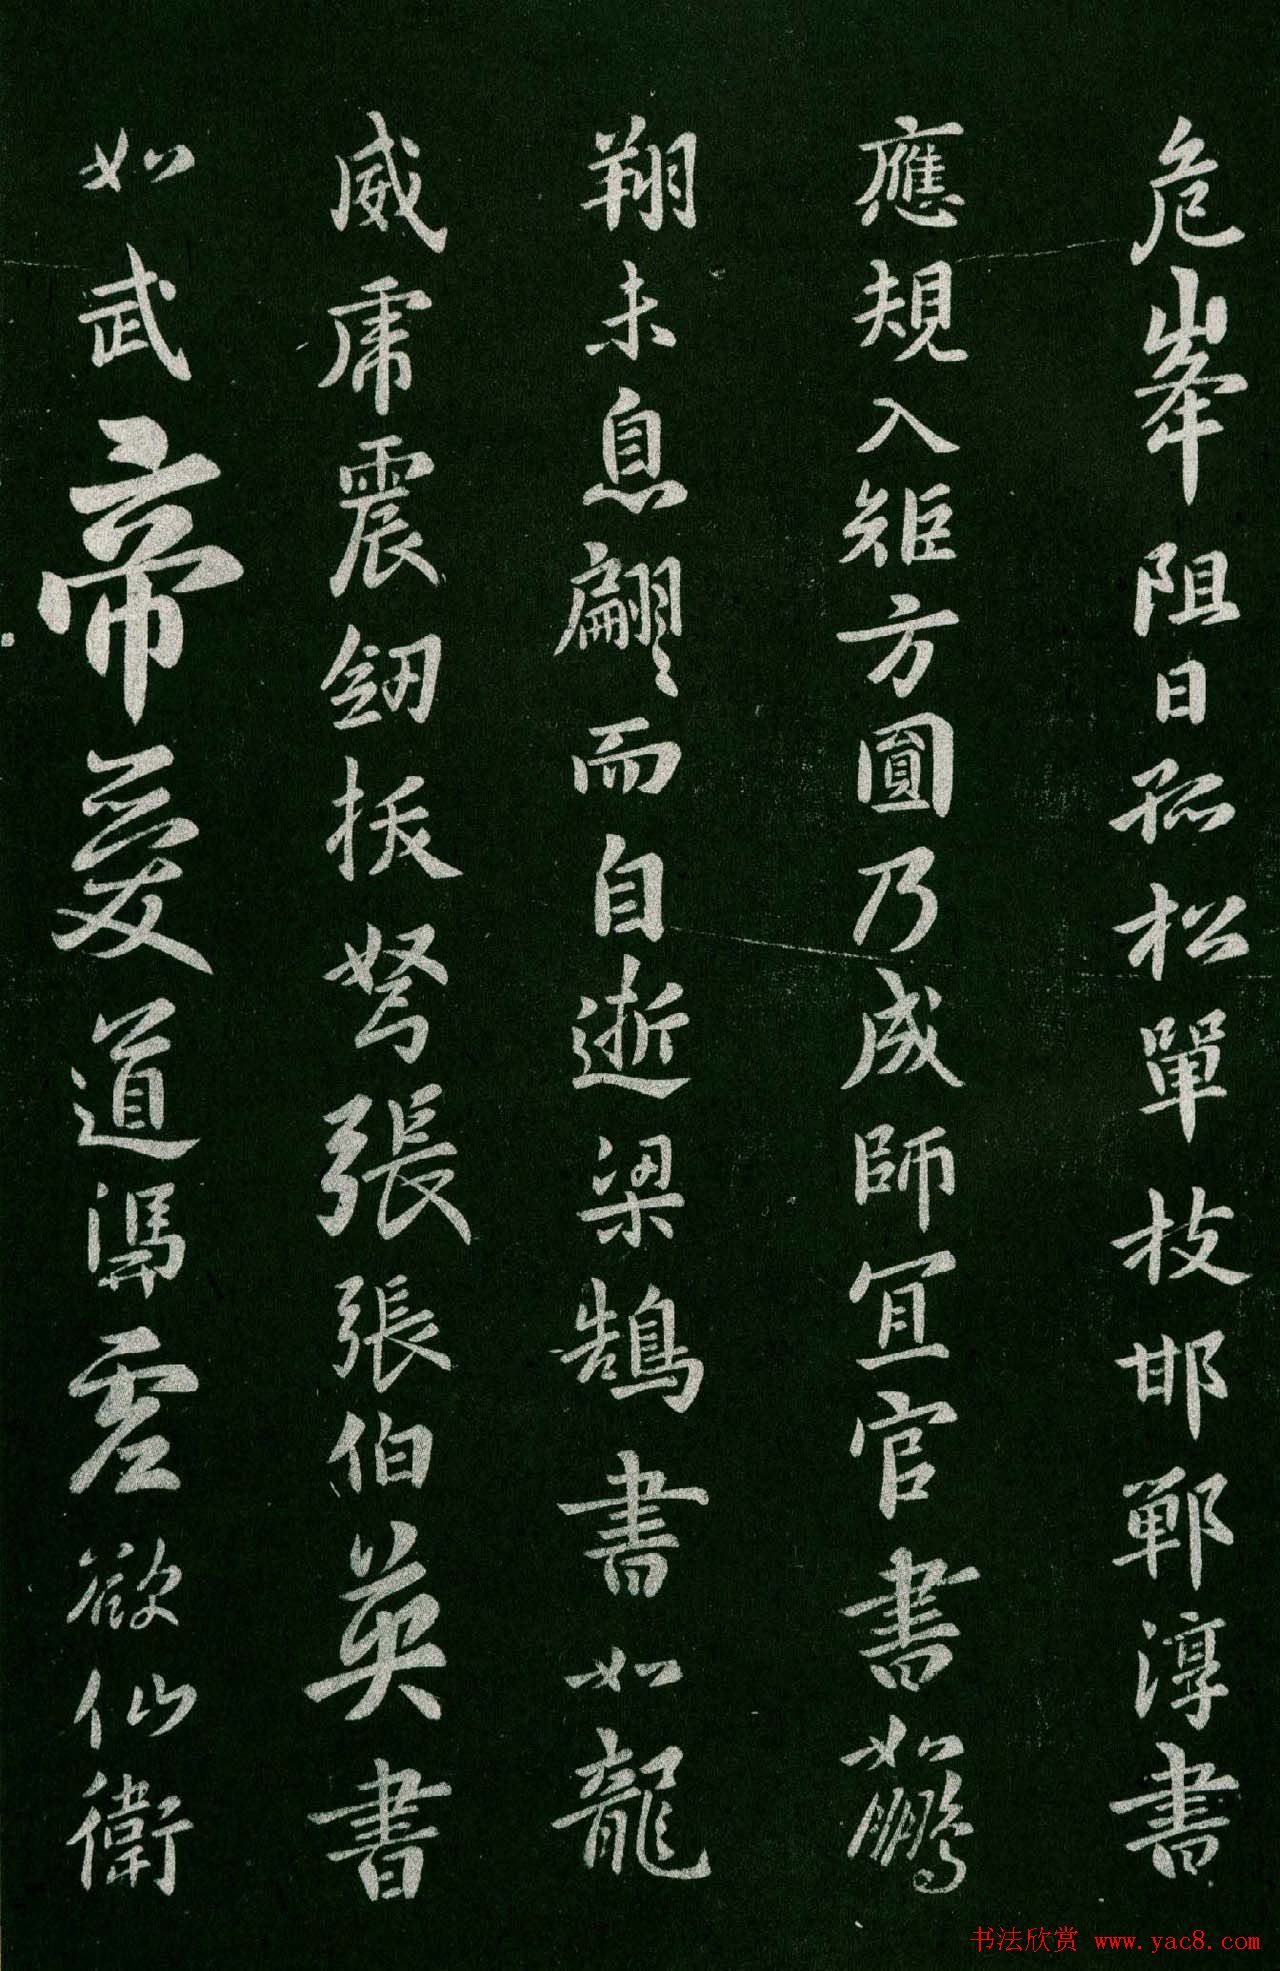 危峯阻日孤松單枝邯鄲淳書
應規入矩方圓乃成師冝官書如鵬
翔未息翩翩而自逝梁鵠書如龍
威虎震劒拔弩張張伯英書
如武帝愛道馮虛欲仙衛
书法欣赏 www.yac8.com